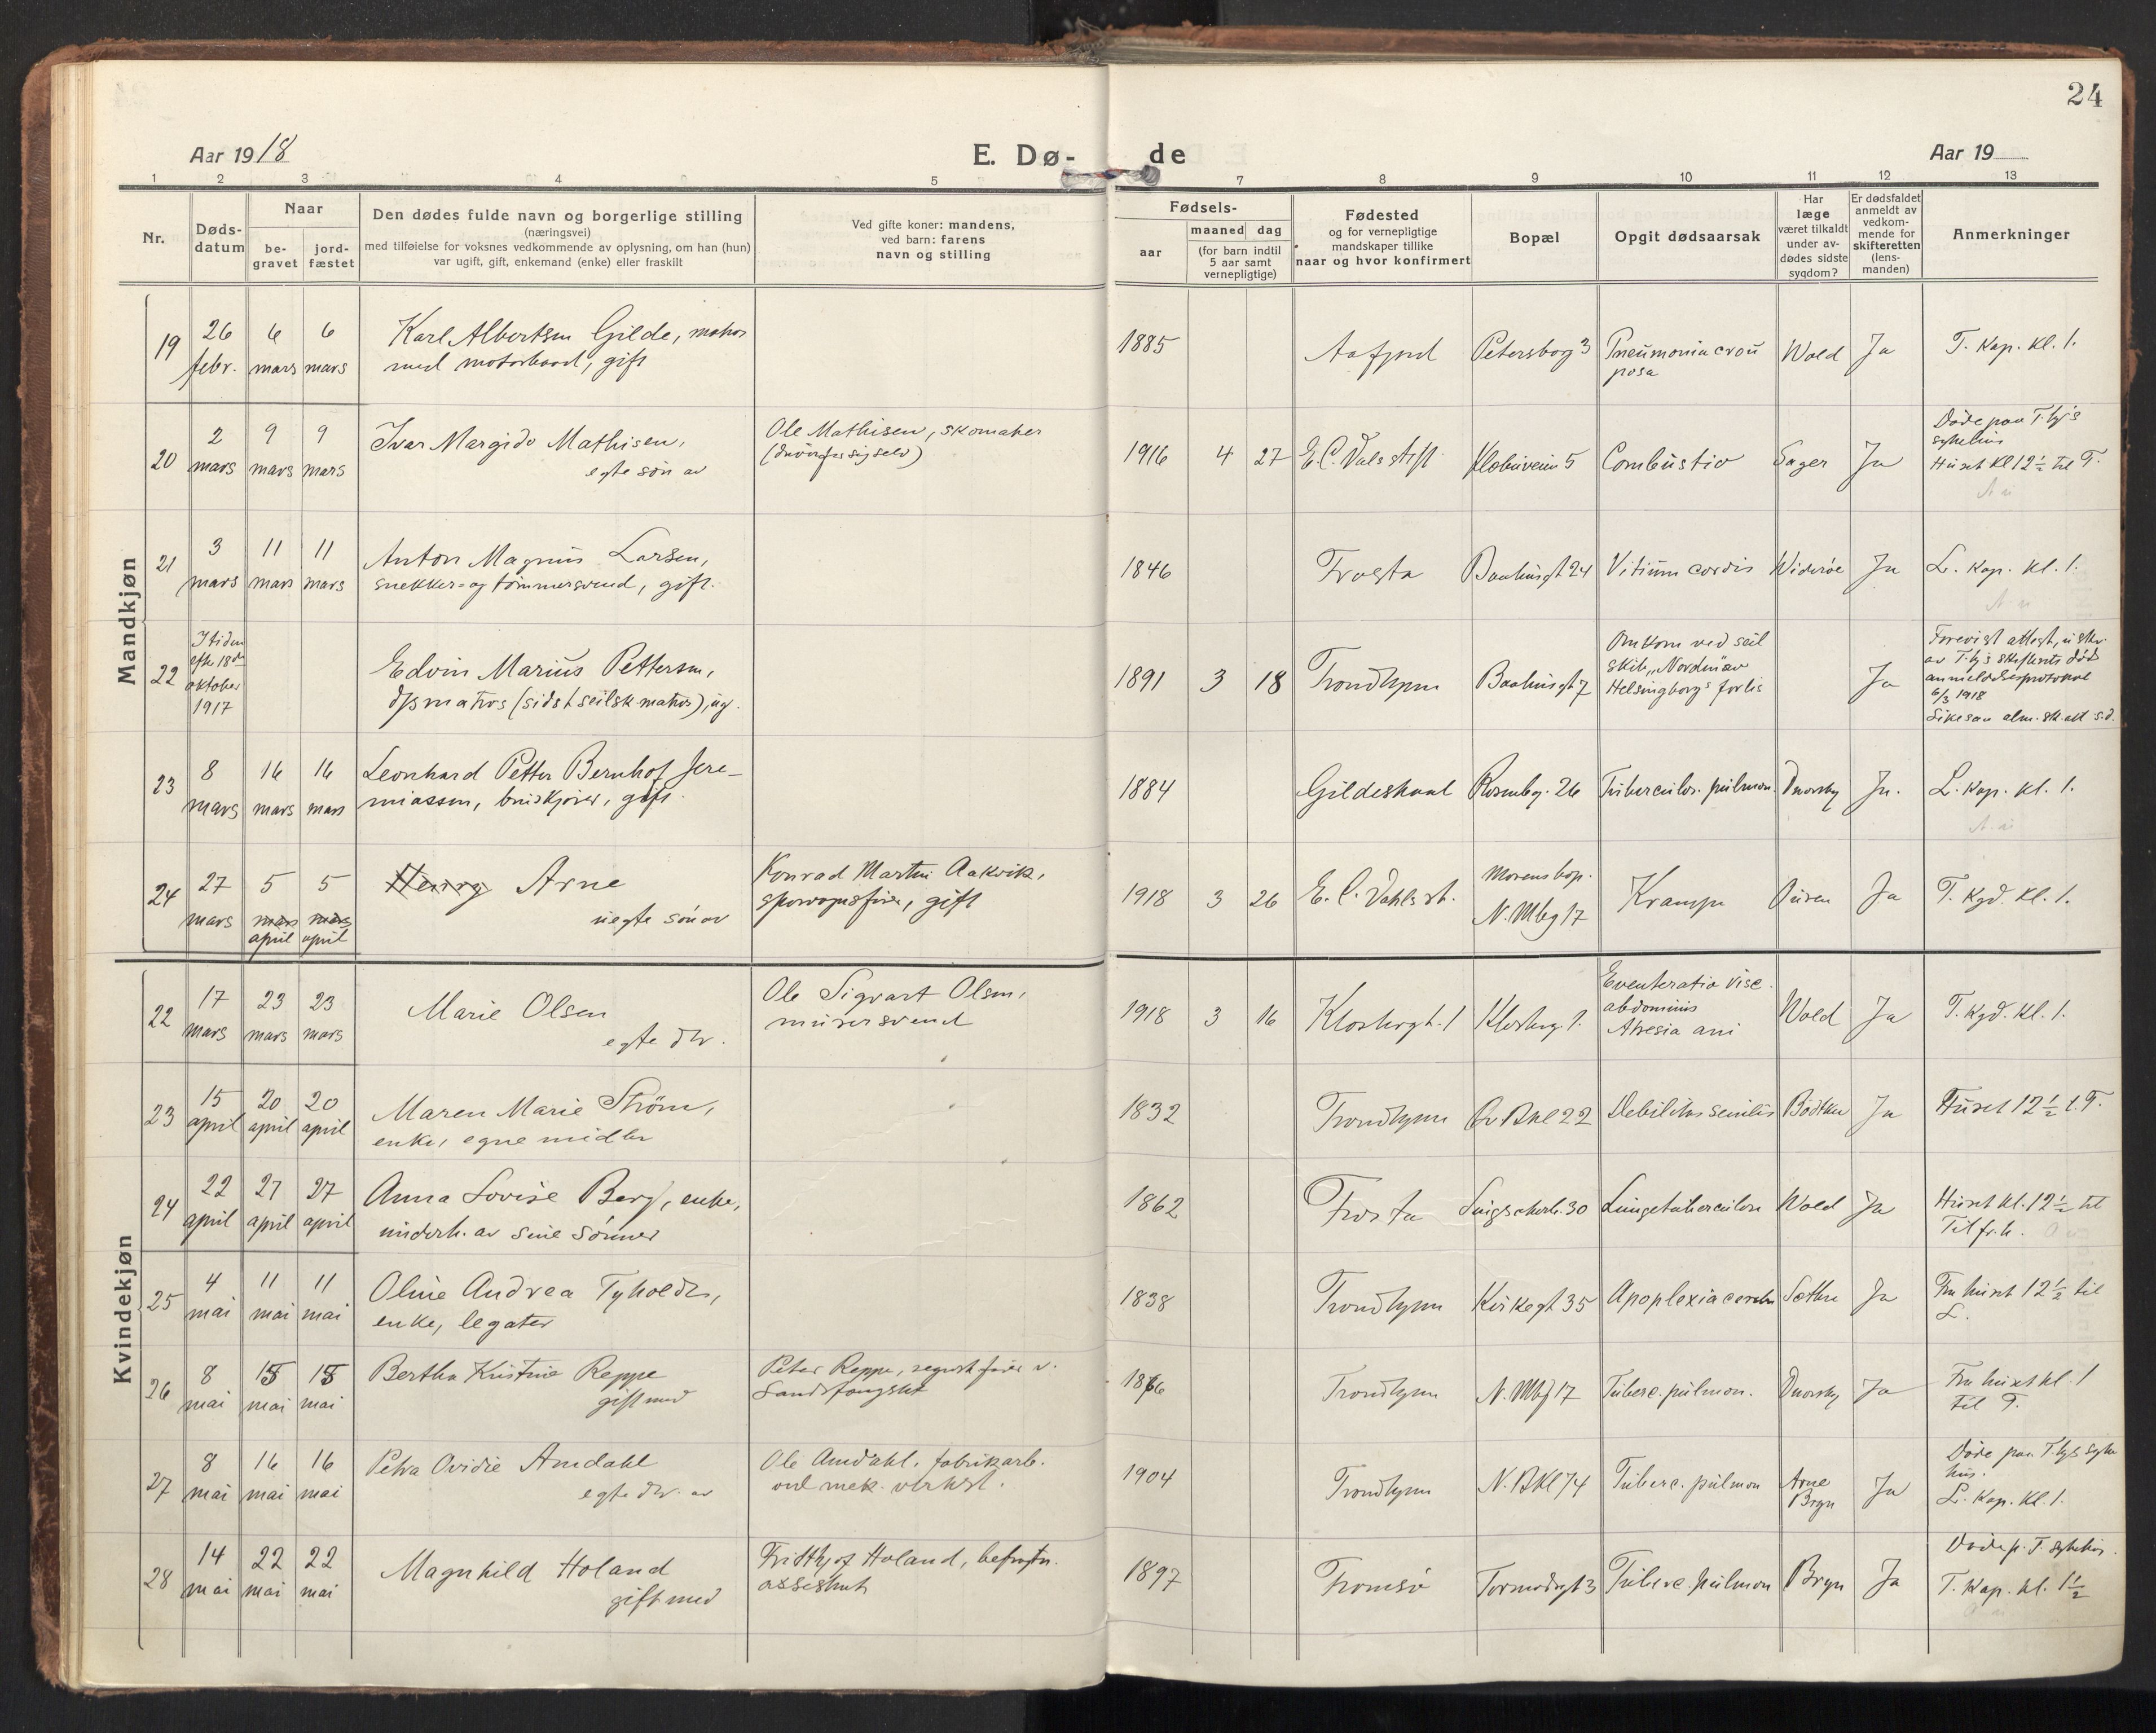 24
Aar 1918
E. Dø-
de
Aar 19
1 2 3 4 5 7 8 9 10 11 12 13
Nr.
Døds-
datum
Naar
be-
gravet
jord-
fæstet
Den dødes fulde navn og borgerlige stilling
(næringsvei)
med tilføielse for voksnes vedkommende av oplysning, om han (hun)
var ugift, gift, enkemand (enke) eller fraskilt
Ved gifte koner: mandens,
ved barn: farens
navn og stilling
Fødsels-
aar
maaned dag
(for barn indtil
5 aar samt
vernepligtige)
Fødested
og for vernepligtige
mandskaper tillike
naar og hvor konfirmert
Bopæl
Opgit dødsaarsak
Har
læge
været tilkaldt
under av-
dødes sidste
sygdom?
Er dødsfaldet
anmeldt av
vedkom-
mende for
skifteretten
(lens-
manden)
Anmerkninger
Mandkjøn
19 26 6 6 Karl Albertsen Gilde,
febr. mars mars med motorbaad, gift
1885 Aafjord Petersborg 3 Pneumonia crou
posa
Wold Ja T. kap. kl. 1.
20 2 9 9 Ivar Margido Mathisen,
mars mars mars egte søn av
Ole Mathisen, skomaker
(driver for sig selv)
1916 4 27 E. C. Dals stift. Klæbuveien 5 Combustio Sager Ja
Døde paa T.hjs
sykehus
Huset kl 12 1/2 til T.
21 3 11 11 Anton Magnus Larsen,
mars mars mars snekker- og tømmersvend, gift.
1846 Frosta Baahusgt 24 Vitium cordis Widerøe Ja L. kap. kl. 1.
22 I tiden
efter 18de
oktober
1917
Edvin Marius Pettersen,
d/smatros (sidst seilsk. matros), ug.
1891 3 18 Trondhjem Baahusgt 7
Omkom ved seil
skib "Norden" av
Helsingborgs forlis
Ja
Forevist attest, utskr.
av T.hjs skifterets døds
anmeldelsesprotokol
6/3 1918
Likesaa alm. sk. att s.d.
23 8 16 16 Leonhard Petter Bernhof Jere-
mars mars mars miassen, bruskjører, gift.
1884 Gildeskaal Rosenbg. 26 Tuberculos. pulmon. Ja. L. kap. kl. 1.
24 27 5 5 Henry Arne
mars mars mars uegte søn av
april april
Konrad Martin Aakvik,
sporvognsfører, gift
1918 3 26 E. C. Dahls st. Morens bop.
N. Mbg 17
Krampe Ouren Ja T. kgd. kl. 1.
Kvindekjøn
22 17 23 23 Marie Olsen
mars mars mars egte dtr.
Ole Sigvart Olsen,
murersvend
1918 3 16 Klostergt. 1 Klosterg. 1.
Eventeratio visc.
abdominis
Atresia ani
Wold Ja T. kgd. kl. 1.
23 15 20 20 Maren Marie Strøm,
april april april enke, egne midler
1832 Trondhjem Øv Bkl 22 Debilitas senilis Bødtker Ja Huset 12 1/2 t. T.
24 22 27 27 Anna Lovise Berg, enke,
april april april underh. av sine sønner
1862 Frosta 30 Lungetuberculose Wold Ja Huset kl. 12 1/2 til
Tilfr.h.
25 4 11 11 Oline Andrea Tyholdt,
mai mai mai enke, legater
1838 Trondhjem Kirkegt 35 Apoplexia cerebri Sæther Ja Fra huset 12 1/2 til
L.
26 8 15 15 Bertha Kristine Reppe
mai mai mai gift med
Peter Reppe, regnskfører v.
Landsfængslet
1866 Trondhjem N. Mbg 17 Tuberc. pulmon. Ja Fra huset kl. 1
til T.
27 8 16 16 Petra Ovidie Amdahl
mai mai mai egte dtr. av
Ole Amdahl, fabrikarb.
ved mek. verkst.
1904 Trondhjem N. Bkl 74 Tuberc. pulmon Arne
Bryn
Ja
Døde paa T.hjs syke
hus.
L. kap. kl. 1.
28 14 22 22 Magnhild Holand
mai mai mai gift med
Fridthjof Holand, befragtn.
assistent
1897 Tromsø Tormodsgt 3 Tuberc. pulmon Bryn Ja
Døde p. T. sykehus.
T. kap. kl. 1 1/2